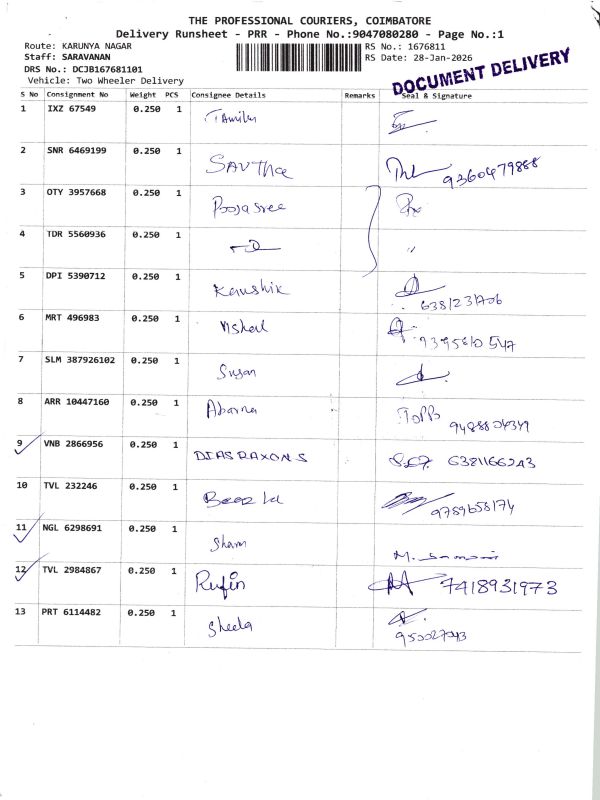 THE PROFESSIONAL COURIERS, COIMBATORE
Delivery Runsheet - PRR - Phone No.:9047080280 - Page No.:1
Route: KARUNYA NAGAR
RS No.: 1676811
Staff: SARAVANAN
RS Date: 28-Jan-2026
DRS No.: DCJB167681101
DOCUMENT DELIVERY
Vehicle: Two Wheeler Delivery
S No Consignment No Weight PCS Consignee Details Remarks Seal & Signature
1 IXZ 67549 0.250 1
2 SNR 6469199 0.250 1 9360479888
3 OTY 3957668 0.250 1 Poojasree
4 TDR 5560936 0.250 1 "
5 DPI 5390712 0.250 1 Kaushik
6 MRT 496983 0.250 1
7 SLM 387926102 0.250 1 Susan
8 ARR 10447160 0.250 1 Abarna
9 VNB 2866956 0.250 1 6381166243
10 TVL 232246 0.250 1 9789658174
11 NGL 6298691 0.250 1
12 TVL 2984867 0.250 1 Rufin 7418931973
13 PRT 6114482 0.250 1 Sheela